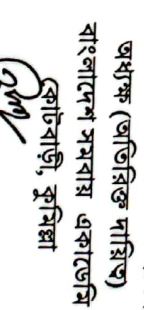 অধ্যক্ষ (অতিরিক্ত দায়িত্ব)
বাংলাদেশ সমবায় একাডেমি
কোটবাড়ী, কুমিল্লা